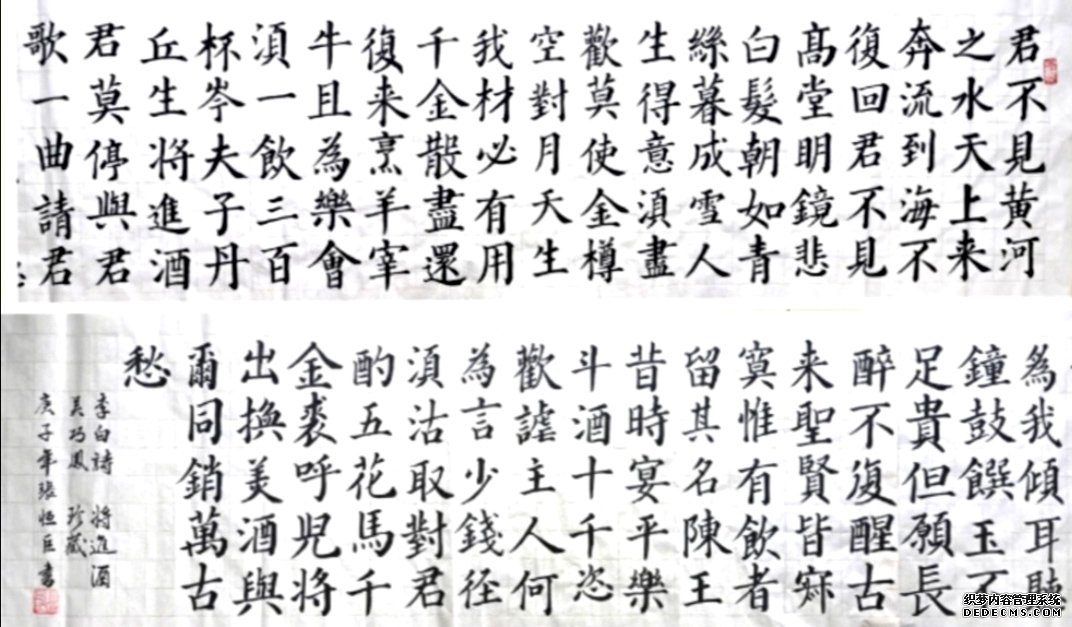 君不見黃河
之水天上来
奔流到海不
復回君不見
髙堂明鏡悲
白髮朝如青
絲暮成雪人
生得意湏盡
歡莫使金樽
空對月天生
我材必有用
千金散盡還
復来烹羊宰
牛且為樂會
湏一飲三百
杯岑夫子丹
丘生将進酒
君莫停與君
歌一曲請君
為我傾耳聴
鐘鼓饌玉不
足貴但願長
醉不復醒古
来聖賢皆寂
寞惟有飲者
留其名陳王
昔時宴平樂
斗酒十千恣
歡謔主人何
為言少錢径
湏沽取對君
酌五花馬千
金裘呼児将
出換美酒與
爾同銷萬古
愁
李白詩 将進酒
吴巧鳳 珍藏
庚子年張恒臣書
织梦内容管理系统
DEDECMS.COM